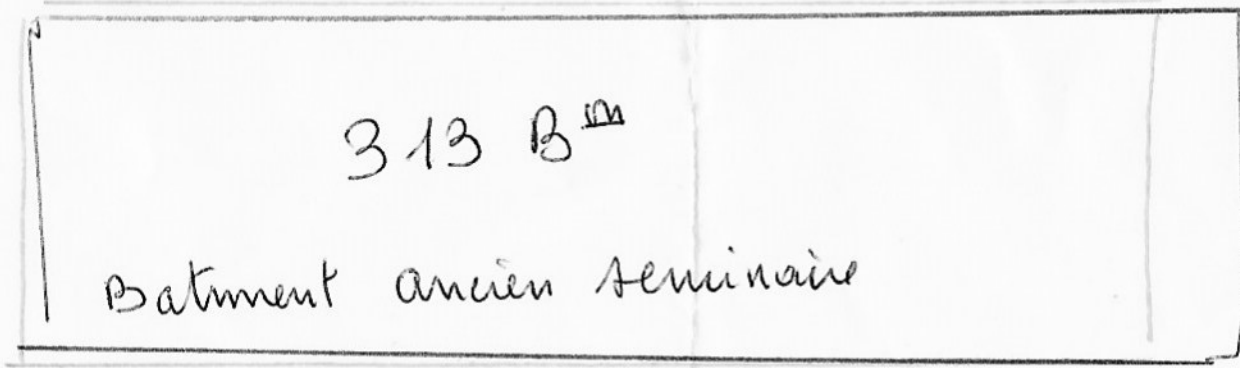 313 Bm
Batiment ancien seminaire